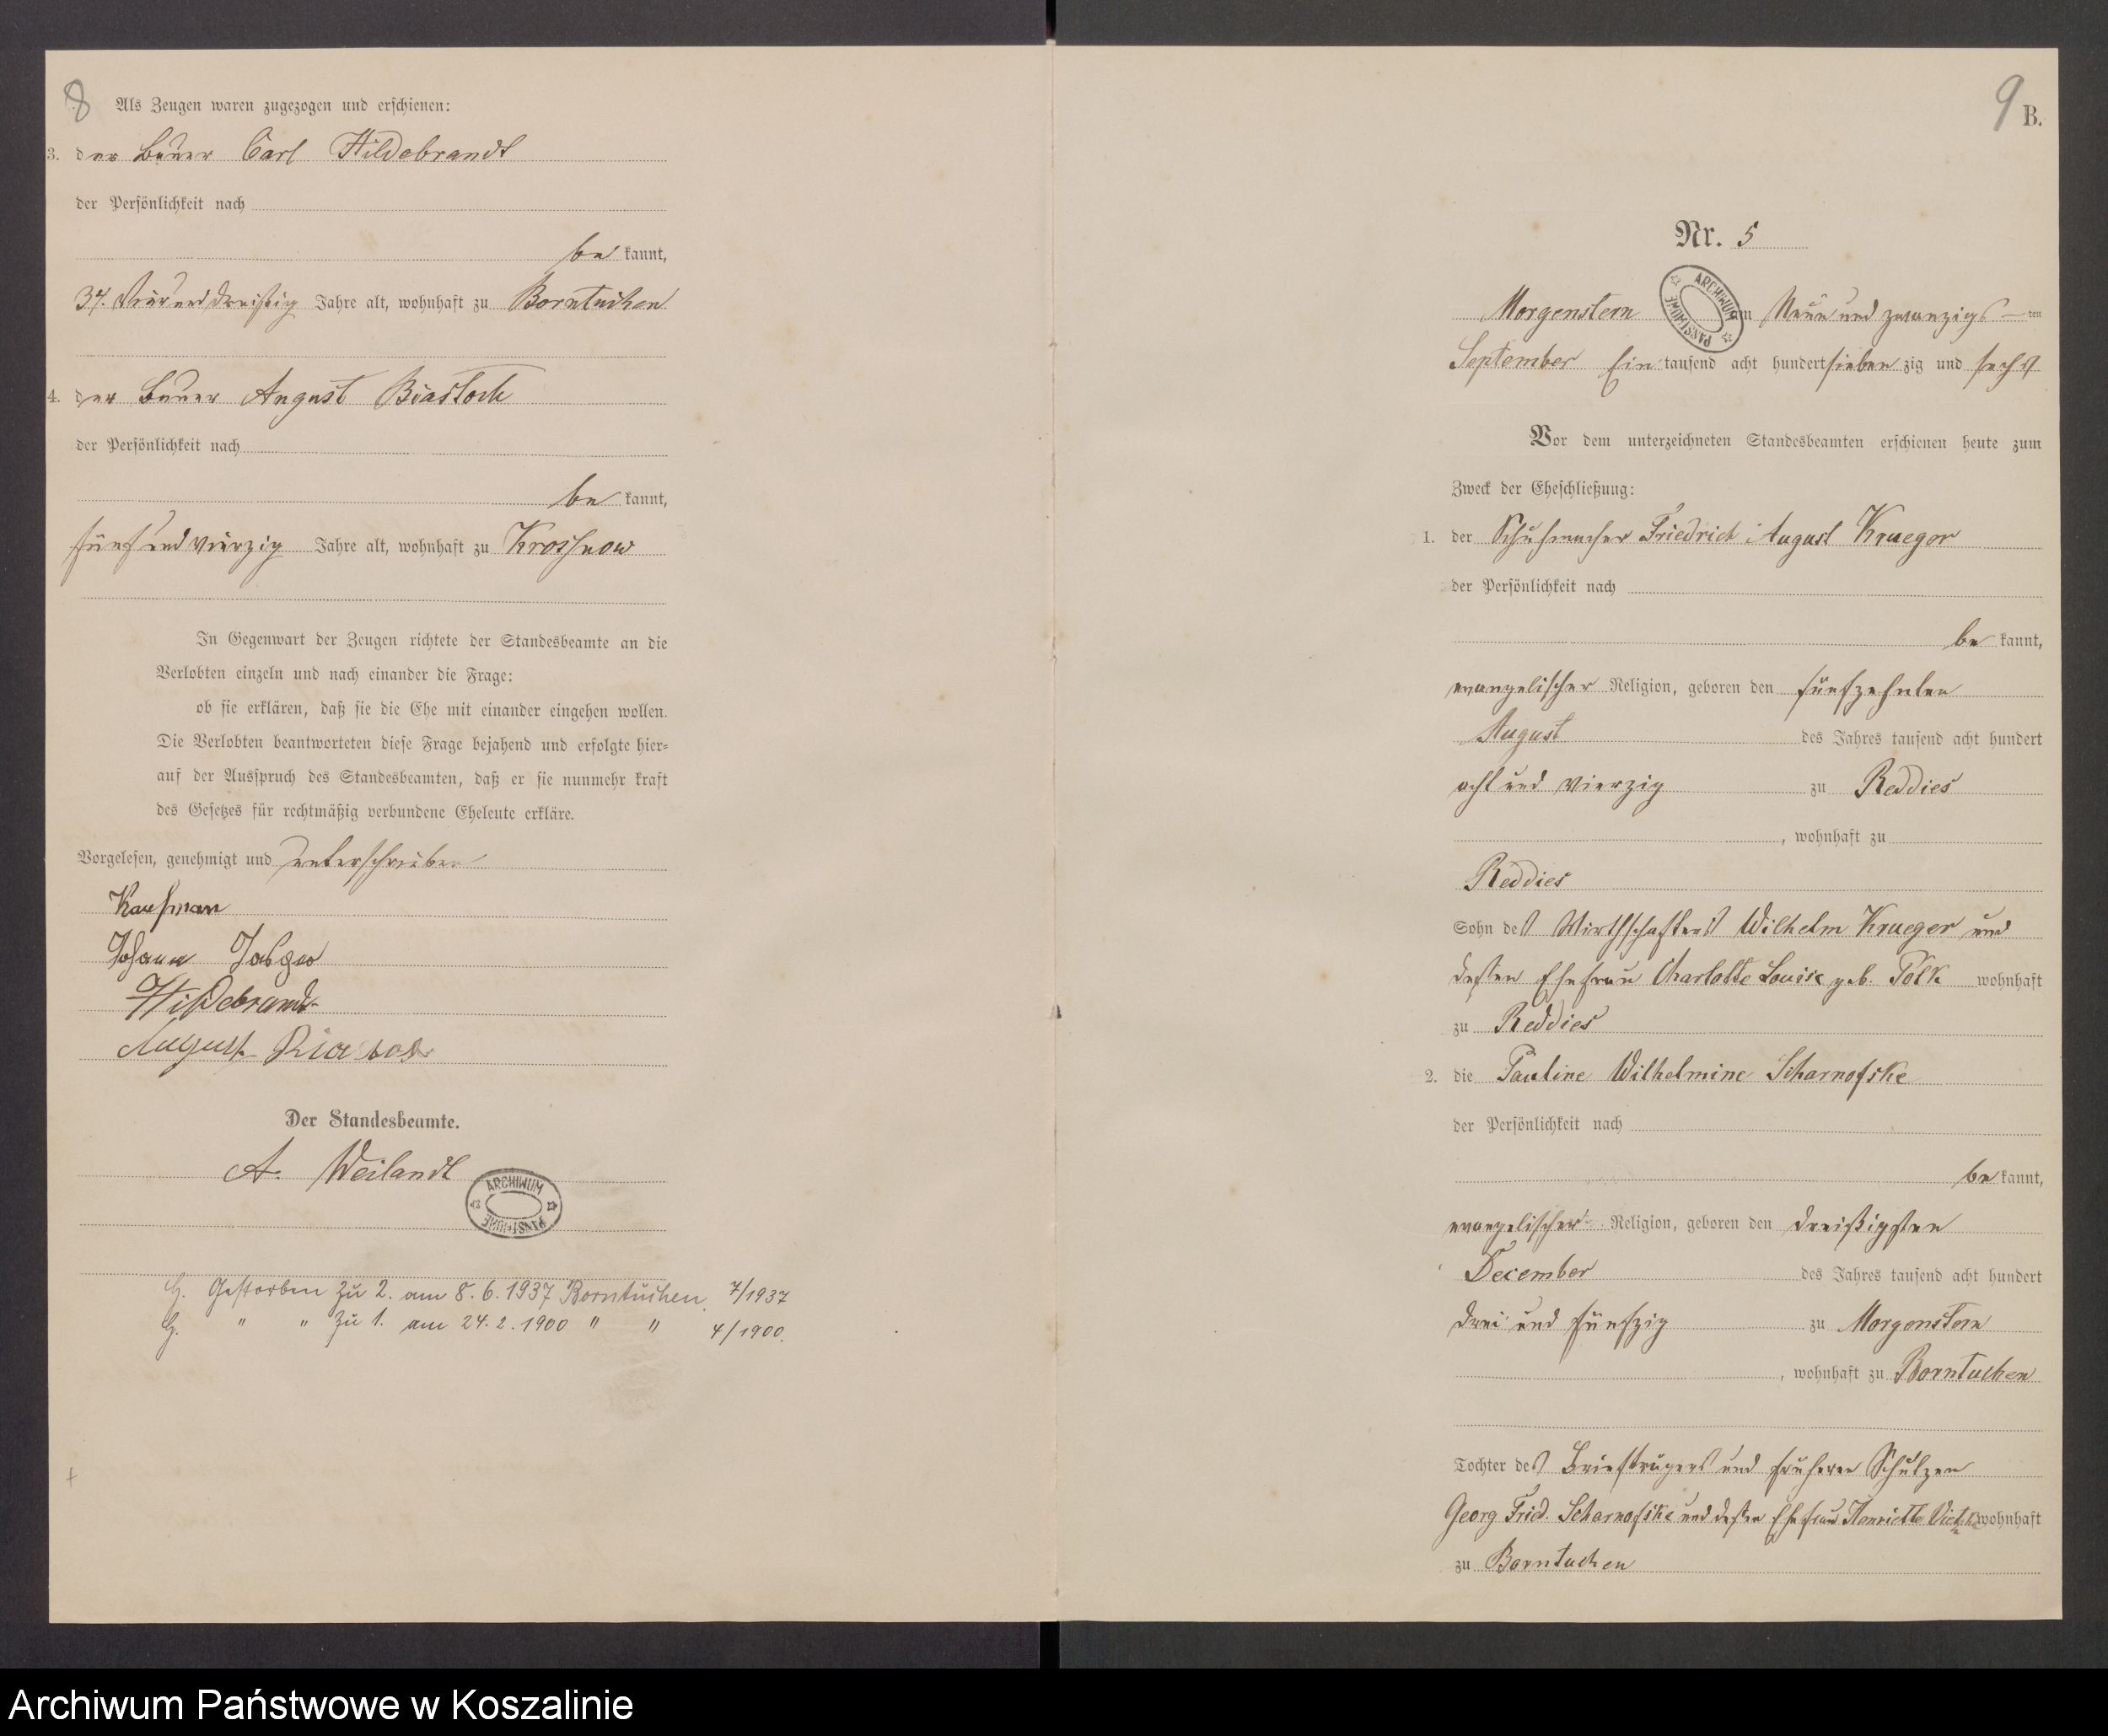 8
Als Zeugen waren zugezogen und erschienen:
3. der Bauer Carl Hildebrandt
der Persönlichkeit nach
be kannt,
34. Vierunddreißig Jahre alt, wohnhaft zu Borntuchen
4. der Bauer August Biastock
der Persönlichkeit nach
be kannt,
fünfundvierzig Jahre alt, wohnhaft zu Krossnow
In Gegenwart der Zeugen richtete der Standesbeamte an die
Verlobten einzeln und nach einander die Frage:
ob sie erklären, daß sie die Ehe mit einander eingehen wollen.
Die Verlobten beantworteten diese Frage bejahend und erfolgte hier-
auf der Ausspruch des Standesbeamten, daß er sie nunmehr kraft
des Gesetzes für rechtmäßig verbundene Eheleute erkläre.
Vorgelesen, genehmigt und unterschrieben
Johann
Hildebrandt
August Biastock
Der Standesbeamte.
A. Weilandt
ARCHIWUM PAŃSTWOWE
G. Gestorben zu 2. am 8.6.1937 Borntuchen 7/1937
G. " " zu 1. am 24.2.1900 " " 4/1900.
9 B.
Nr. 5
ARCHIWUM PAŃSTWOWE
Morgenstern am Neun und zwanzigs ten
September Ein tausend acht hundert sieben zig und sechs
Vor dem unterzeichneten Standesbeamten erschienen heute zum
Zweck der Eheschließung:
1. der Schuhmacher Friedrich August Krueger
der Persönlichkeit nach
be kannt,
evangelischer Religion, geboren den fünfzehnten
August des Jahres tausend acht hundert
acht und vierzig zu Reddies
, wohnhaft zu
Reddies
Sohn des Wirthschafters Wilhelm Krueger und
dessen Ehefrau Charlotte Louise geb. Polk wohnhaft
zu Reddies
2. die Pauline Wilhelmine Scharnofske
der Persönlichkeit nach
be kannt,
evangelischer Religion, geboren den dreißigsten
December des Jahres tausend acht hundert
drei und fünfzig zu Morgenstern
, wohnhaft zu Borntuchen
Tochter des Briefträgers und früheren Schulzen
Georg Fried. Scharnofske und dessen Ehefrau Henriette wohnhaft
zu Borntuchen
Archiwum Państwowe w Koszalinie